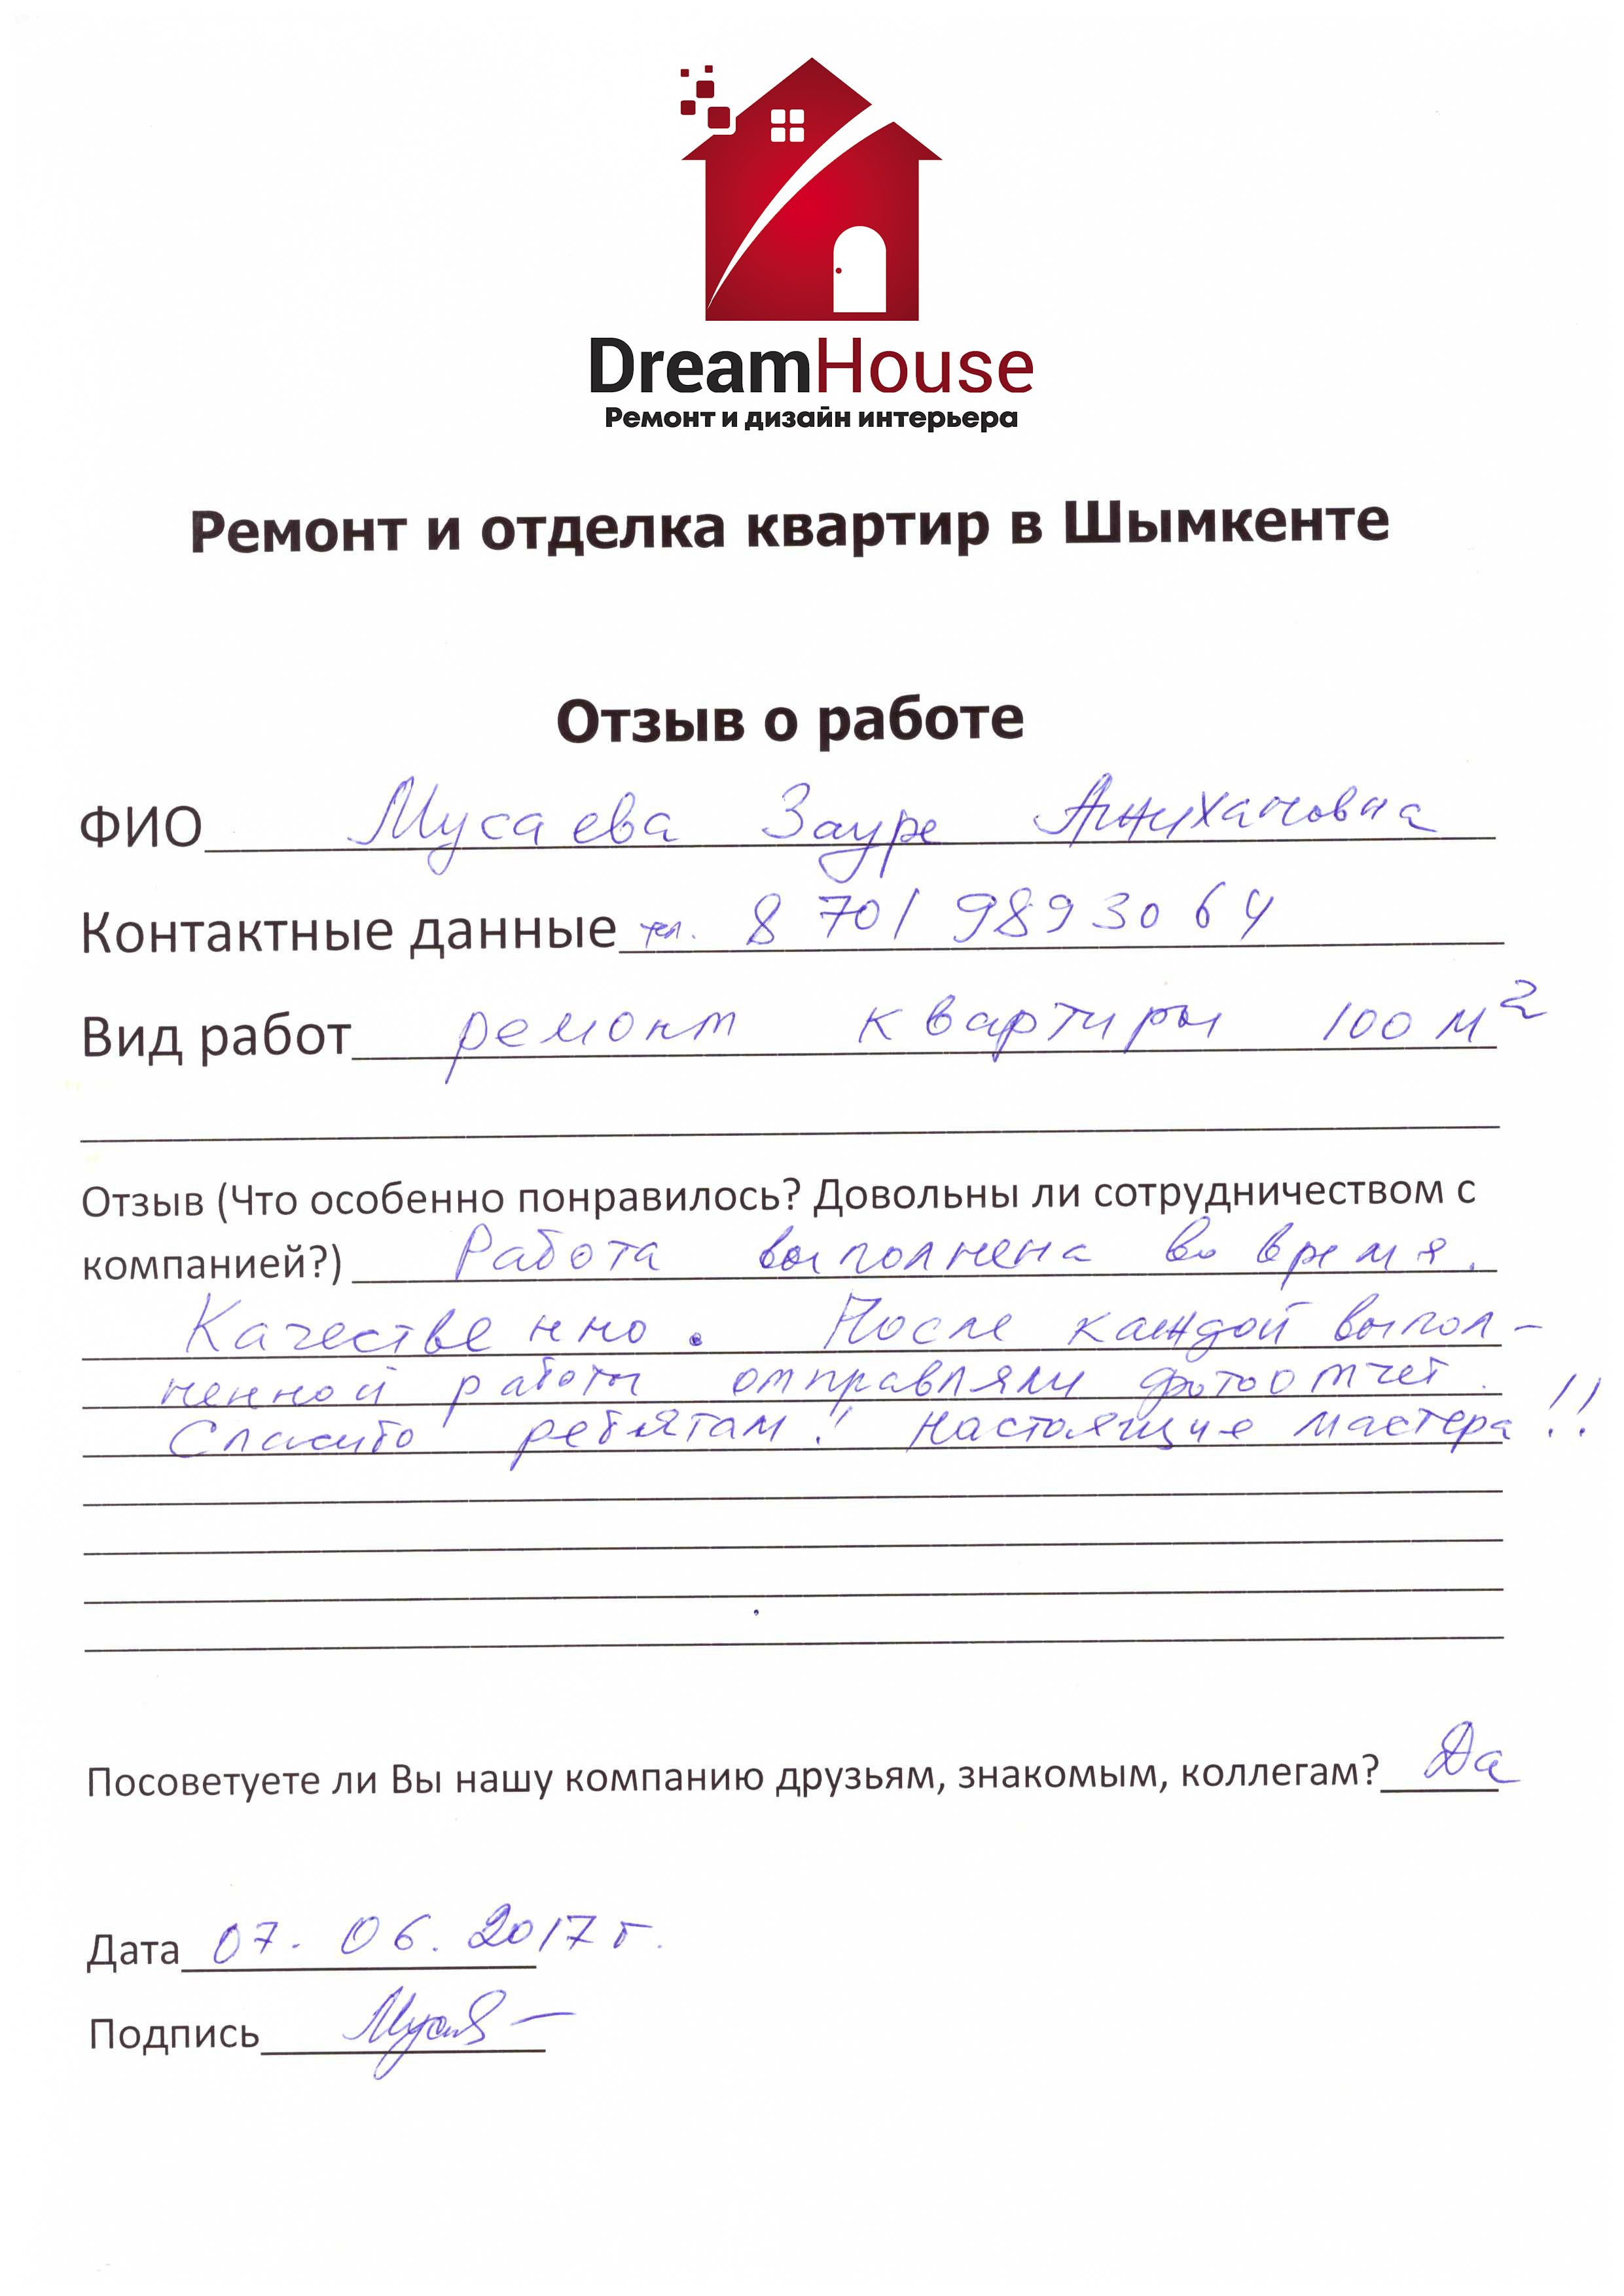 DreamHouse
Ремонт и дизайн интерьера
Ремонт и отделка квартир в Шымкенте
Отзыв о работе
ФИО Мусаева Зауре
Контактные данные тел. 8 701 9893064
Вид работ ремонт квартиры 100 м²
Отзыв (Что особенно понравилось? Довольны ли сотрудничеством с
компанией?) Работа выполнена во время.
Качественно. После каждой выпол-
ненной работы отправляли фотоотчет.
Спасибо ребятам! Настоящие мастера!!
Посоветуете ли Вы нашу компанию друзьям, знакомым, коллегам? Да
Дата 07.06.2017 г.
Подпись